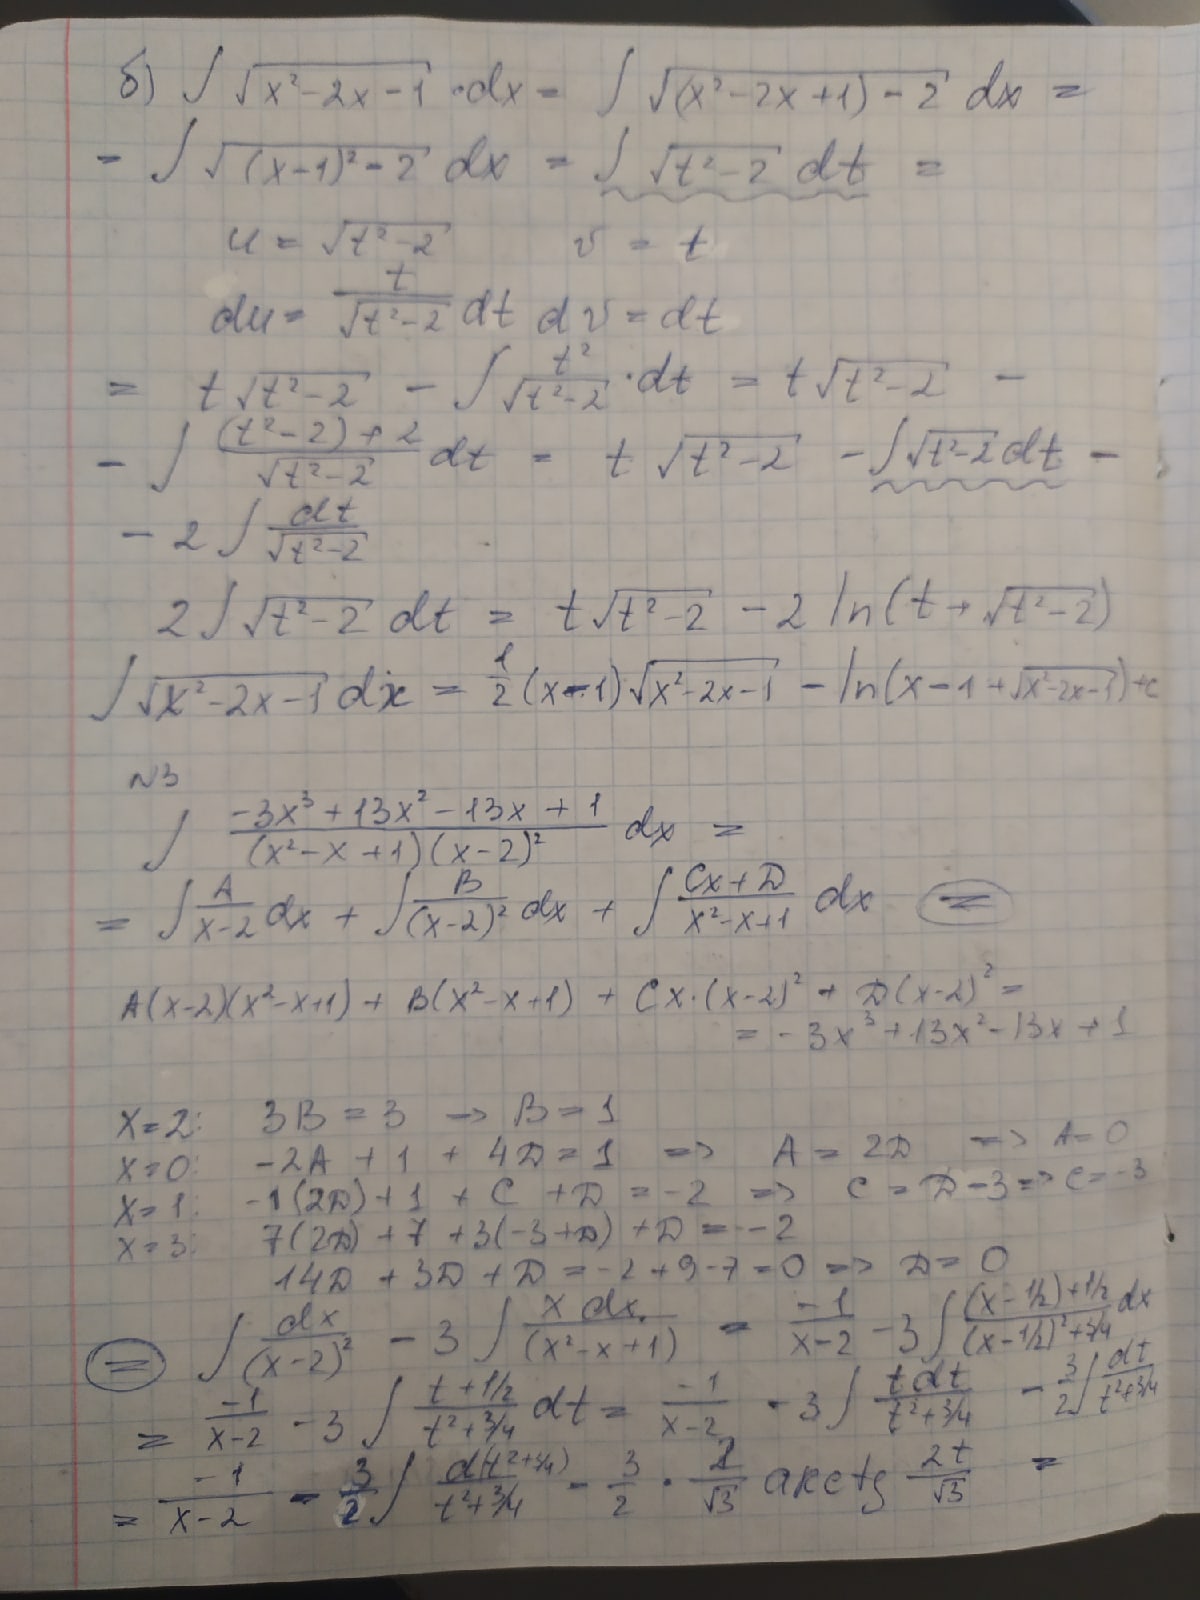 б) ∫ √(x²-2x-1) · dx = ∫ √((x²-2x+1)-2) dx =
= ∫ √((x-1)²-2) dx = ∫ √(t²-2) dt =
u = √(t²-2) v = t
du = t/√(t²-2) dt dv = dt
= t√(t²-2) - ∫ t²/√(t²-2) · dt = t√(t²-2) -
- ∫ ((t²-2)+2)/√(t²-2) dt = t √(t²-2) - ∫√(t²-2) dt -
- 2 ∫ dt/√(t²-2)
2 ∫ √(t²-2) dt = t√(t²-2) - 2 ln(t+√(t²-2))
∫ √(x²-2x-1) dx = 1/2 (x-1)√(x²-2x-1) - ln(x-1+√(x²-2x-1))+c
N3
∫ (-3x³+13x²-13x+1)/((x²-x+1)(x-2)²) dx =
= ∫ A/(x-2) dx + ∫ B/(x-2)² dx + ∫ (Cx+D)/(x²-x+1) dx =
A(x-2)(x²-x+1) + B(x²-x+1) + Cx·(x-2)² + D(x-2)² =
= -3x³+13x²-13x+1
x=2: 3B = 3 → B = 1
x=0: -2A + 1 + 4D = 1 => A = 2D => A=0
x=1: -1(2D)+1 + C + D = -2 => C = D-3 => C=-3
x=3: 7(2D) + 7 + 3(-3+D) + D = -2
14D + 3D + D = -2+9-7=0 => D = 0
= ∫ dx/(x-2)² - 3 ∫ x dx/(x²-x+1) = -1/(x-2) - 3∫ ((x-1/2)+1/2)/((x-1/2)²+3/4) dx
= -1/(x-2) - 3 ∫ (t+1/2)/(t²+3/4) dt = -1/(x-2) - 3∫ t dt/(t²+3/4) - 3/2 ∫ dt/(t²+3/4)
= -1/(x-2) - 3/2 ∫ d(t²+3/4)/(t²+3/4) - 3/2 · 2/√3 arctg 2t/√3 =